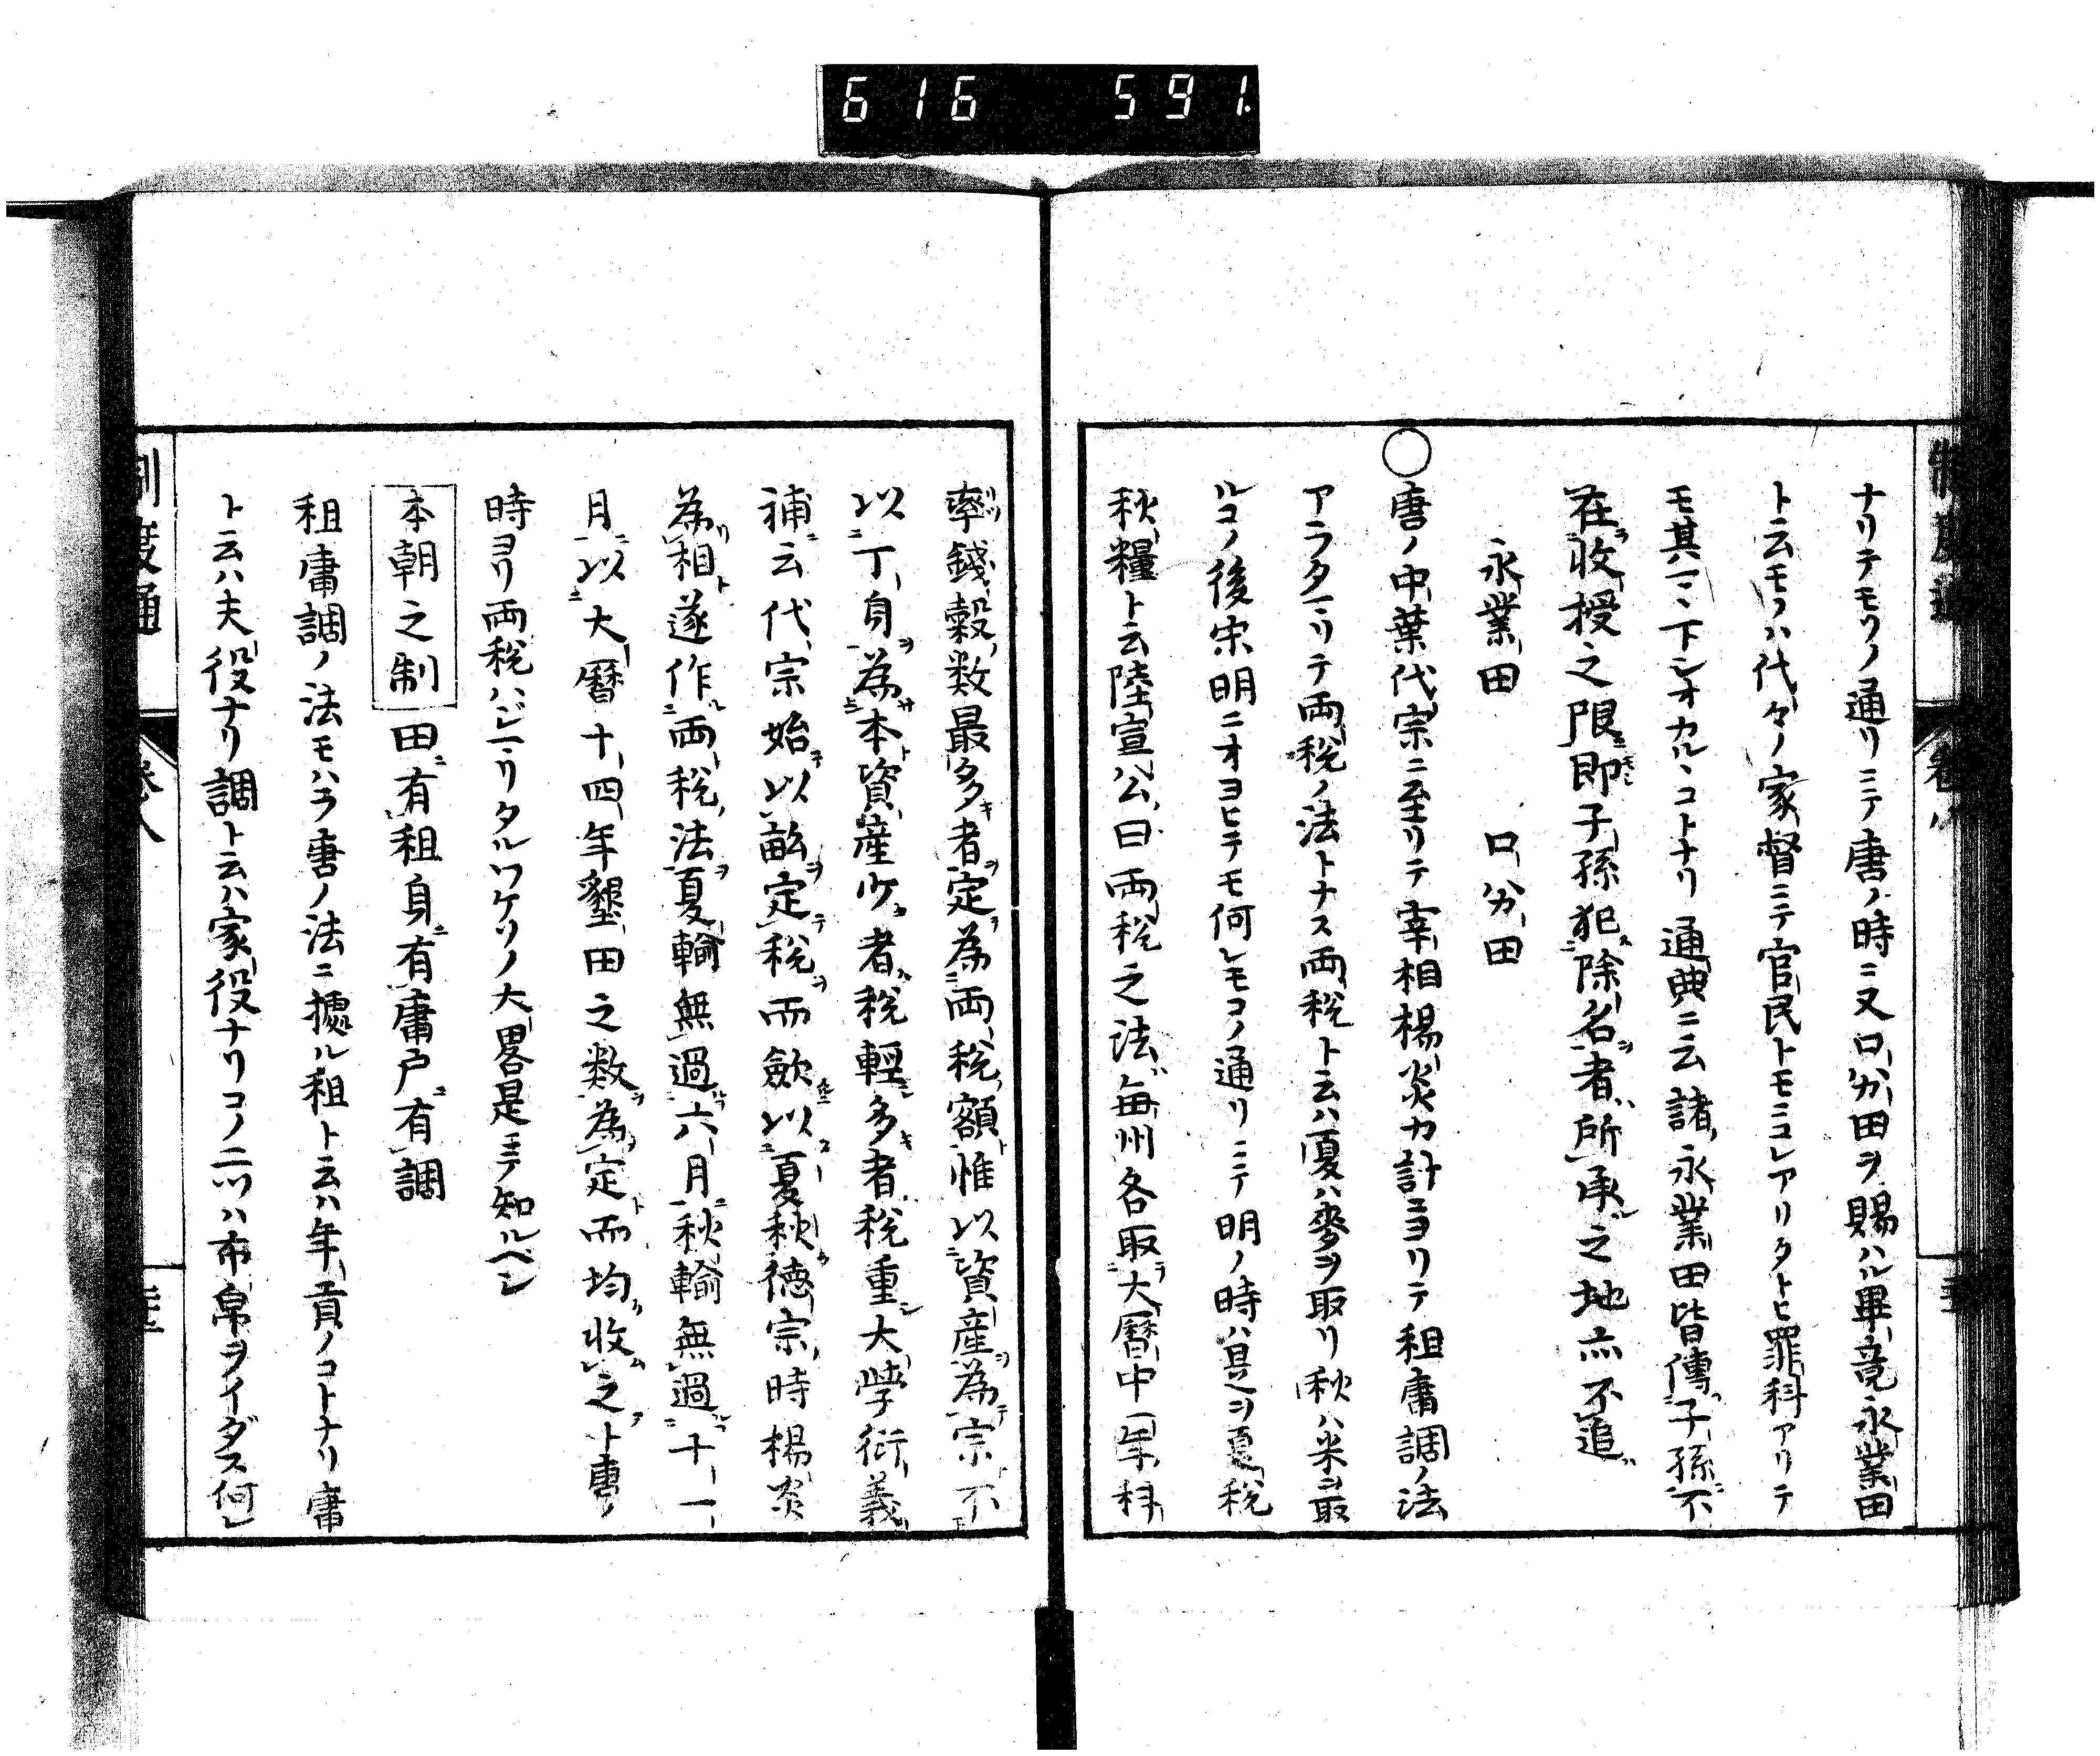 616 591.
制度通 卷八
ナリテモワノ通リニテ唐ノ時ニ又口分田ヲ賜ハル畢竟永業田
ト云モノハ代々ノ家督ニテ官民トモニコレアリタトヒ罪科アリテ
モ其ハ下シオカルヽコトナリ通典ニ云諸永業田皆傳子孫不
在收授之限即子孫犯除名者所承之地亦不追
永業田 口分田
○唐ノ中葉代宗ニ至リテ宰相楊炎カ計ニヨリテ租庸調ノ法
アラタマリテ両税ノ法トナス両税ト云ハ夏ハ麥ヲ取リ秋ハ米ヲ取
ルコノ後宋明ニオヨヒテモ何レモコノ通リニテ明ノ時ハ是ヲ夏税
秋糧ト云陸宣公曰両税之法毎州各取大曆中一年科
率錢穀数最多者定為両税額惟以資産為宗不
以丁身為本資産少者税輕多者税重大學衍義
補云代宗始以畝定税而歛以夏秋徳宗時楊炎
為相遂作両税法夏輸無過六月秋輸無過十一
月以大曆十四年墾田之数為定而均收之ト唐ノ
時ヨリ両税ハジマリタルワケソノ大畧是ニテ知ルベシ
本朝之制 田有租身有庸戸有調
租庸調ノ法モハラ唐ノ法ニ據ル租ト云ハ年貢ノコトナリ庸
ト云ハ夫役ナリ調ト云ハ家役ナリコノ二ツハ布帛ヲイダス何レ
制度通 卷八